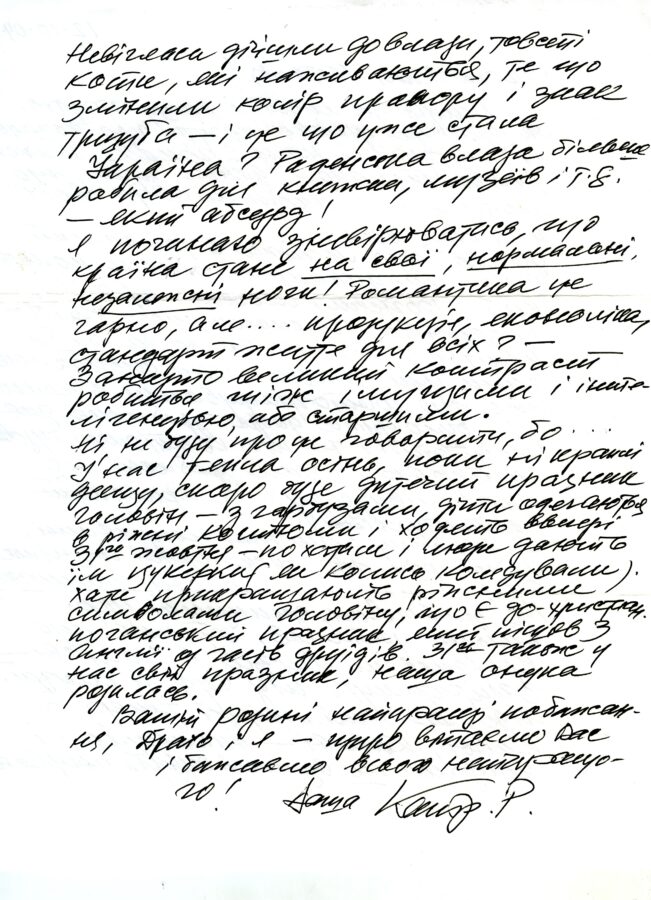 Невігласи дійшли до влади, товсті
коти, які наживаються, те що
змінили колір прапору і знак
тризуба — і це що уже стала
Україна? Радянська влада більше
робила для книжки, музеїв і т.д.
— який абсурд!
Я починаю зневірюватись, що
країна стане на свої, нормальні,
незалежні ноги! Романтика це
гарно, але.... продукція, економіка,
стандарт життя для всіх? —
Занадто великий контраст
робиться між імущими і інте-
лігенцією, або старшими.
Ні не буду про це говорити, бо...
У нас тепла осінь, поки ні краплі
дощу, скоро буде дитячий празник
Головін — з гарбузами, діти одягаються
в ріжні костюми і ходять ввечері
31го жовтня — по хатах і люди дають
їм цукерки (як колись колядували).
Хати прикрашають ріжними
символами Головіну, що є до-христян.
поганський празник, який пішов з
Англії у часів друїдів. 31го також у
нас свій празник, наша онука
родилась.
Вашій родині найкращі побажан-
ня, і я — щиро вітаємо Вас
і бажаємо всього найкращо-
го! Ваша